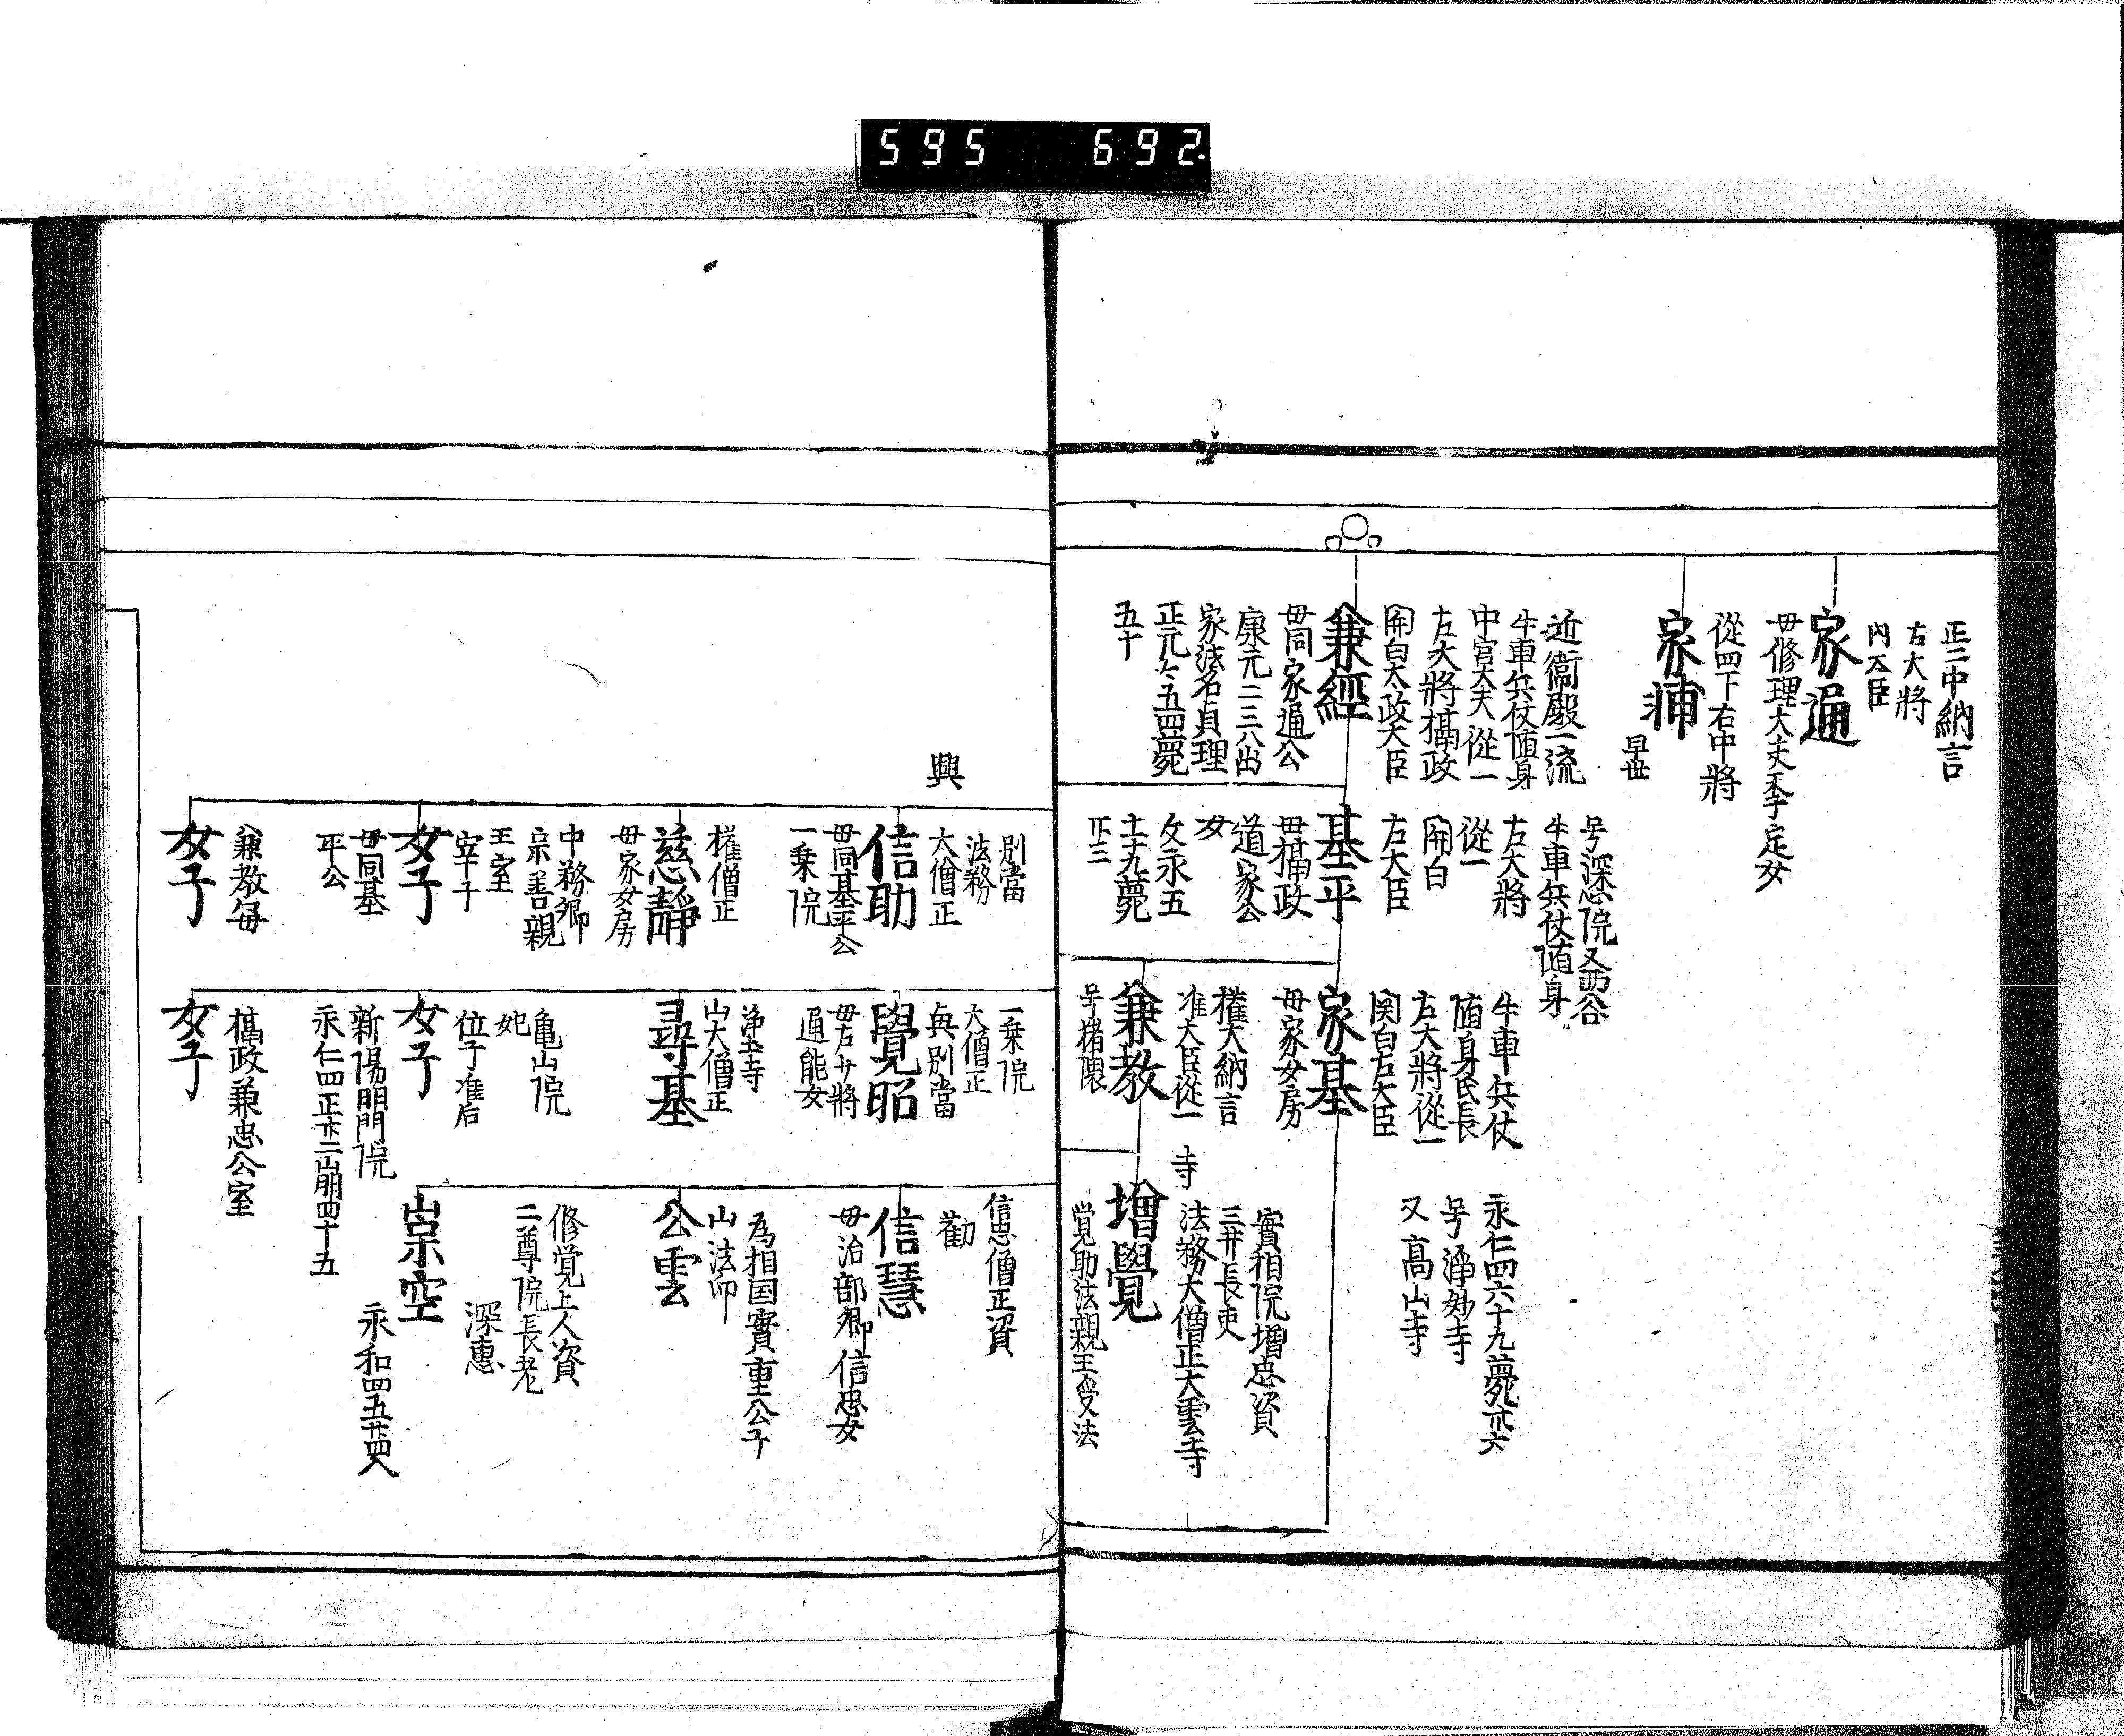 595 692
正二中納言
右大将
内大臣
家通
母修理大夫季定女
從四下右中将
家輔
早世
近衞殿一流
牛車兵仗随身
中宮大夫從一
左大将摂政
関白太政大臣
兼經
母同家通公
康元二三八出
家法名貞理
正元々五四薨
五十
号深心院又西谷
牛車兵仗随身
右大将
從一
関白
左大臣
基平
母摂政
道家公
女
文永五
十一十九薨
廿三
牛車兵仗
随身氏長
左大将從一
関白右大臣
家基
母家女房
權大納言
准大臣從一
兼教
号猪隈
永仁四六十九薨卅六
号淨妙寺
又髙山寺
實相院増忠資
三井長吏
法務大僧正大雲寺
寺
増覺
覚助法親王受法
興
別當
法務
大僧正
信助
母同基平公
一乗院
權僧正
慈靜
母家女房
中務卿
宗善親
王室
宰子
女子
母同基
平公
兼教母
女子
一乗院
大僧正
興別當
覺昭
母右少将
通能女
浄土寺
山大僧正
尋基
亀山院
妃
位子准后
女子
新陽明門院
永仁四正廿二崩四十五
摂政兼忠公室
女子
信忠僧正資
勧
信慧
母治部卿信忠女
為相国實重公子
山法印
公雲
修覚上人資
二尊院長老
深惠
崇空
永和四五廿四入